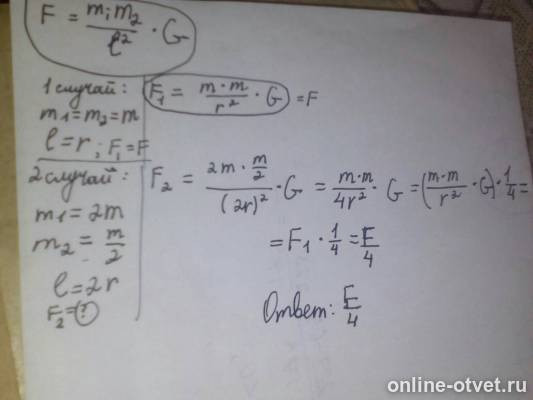 F = m₁m₂/ℓ² · G
1 случай:
m₁=m₂=m
ℓ=r; F₁=F
F₁ = m·m/r² · G = F
2 случай:
m₁=2m
m₂= m/2
ℓ=2r
F₂=?
F₂ = 2m · m/2 / (2r)² · G = m·m/4r² · G = (m·m/r² · G) · 1/4 =
= F₁ · 1/4 = F/4
Ответ: F/4
online-otvet.ru